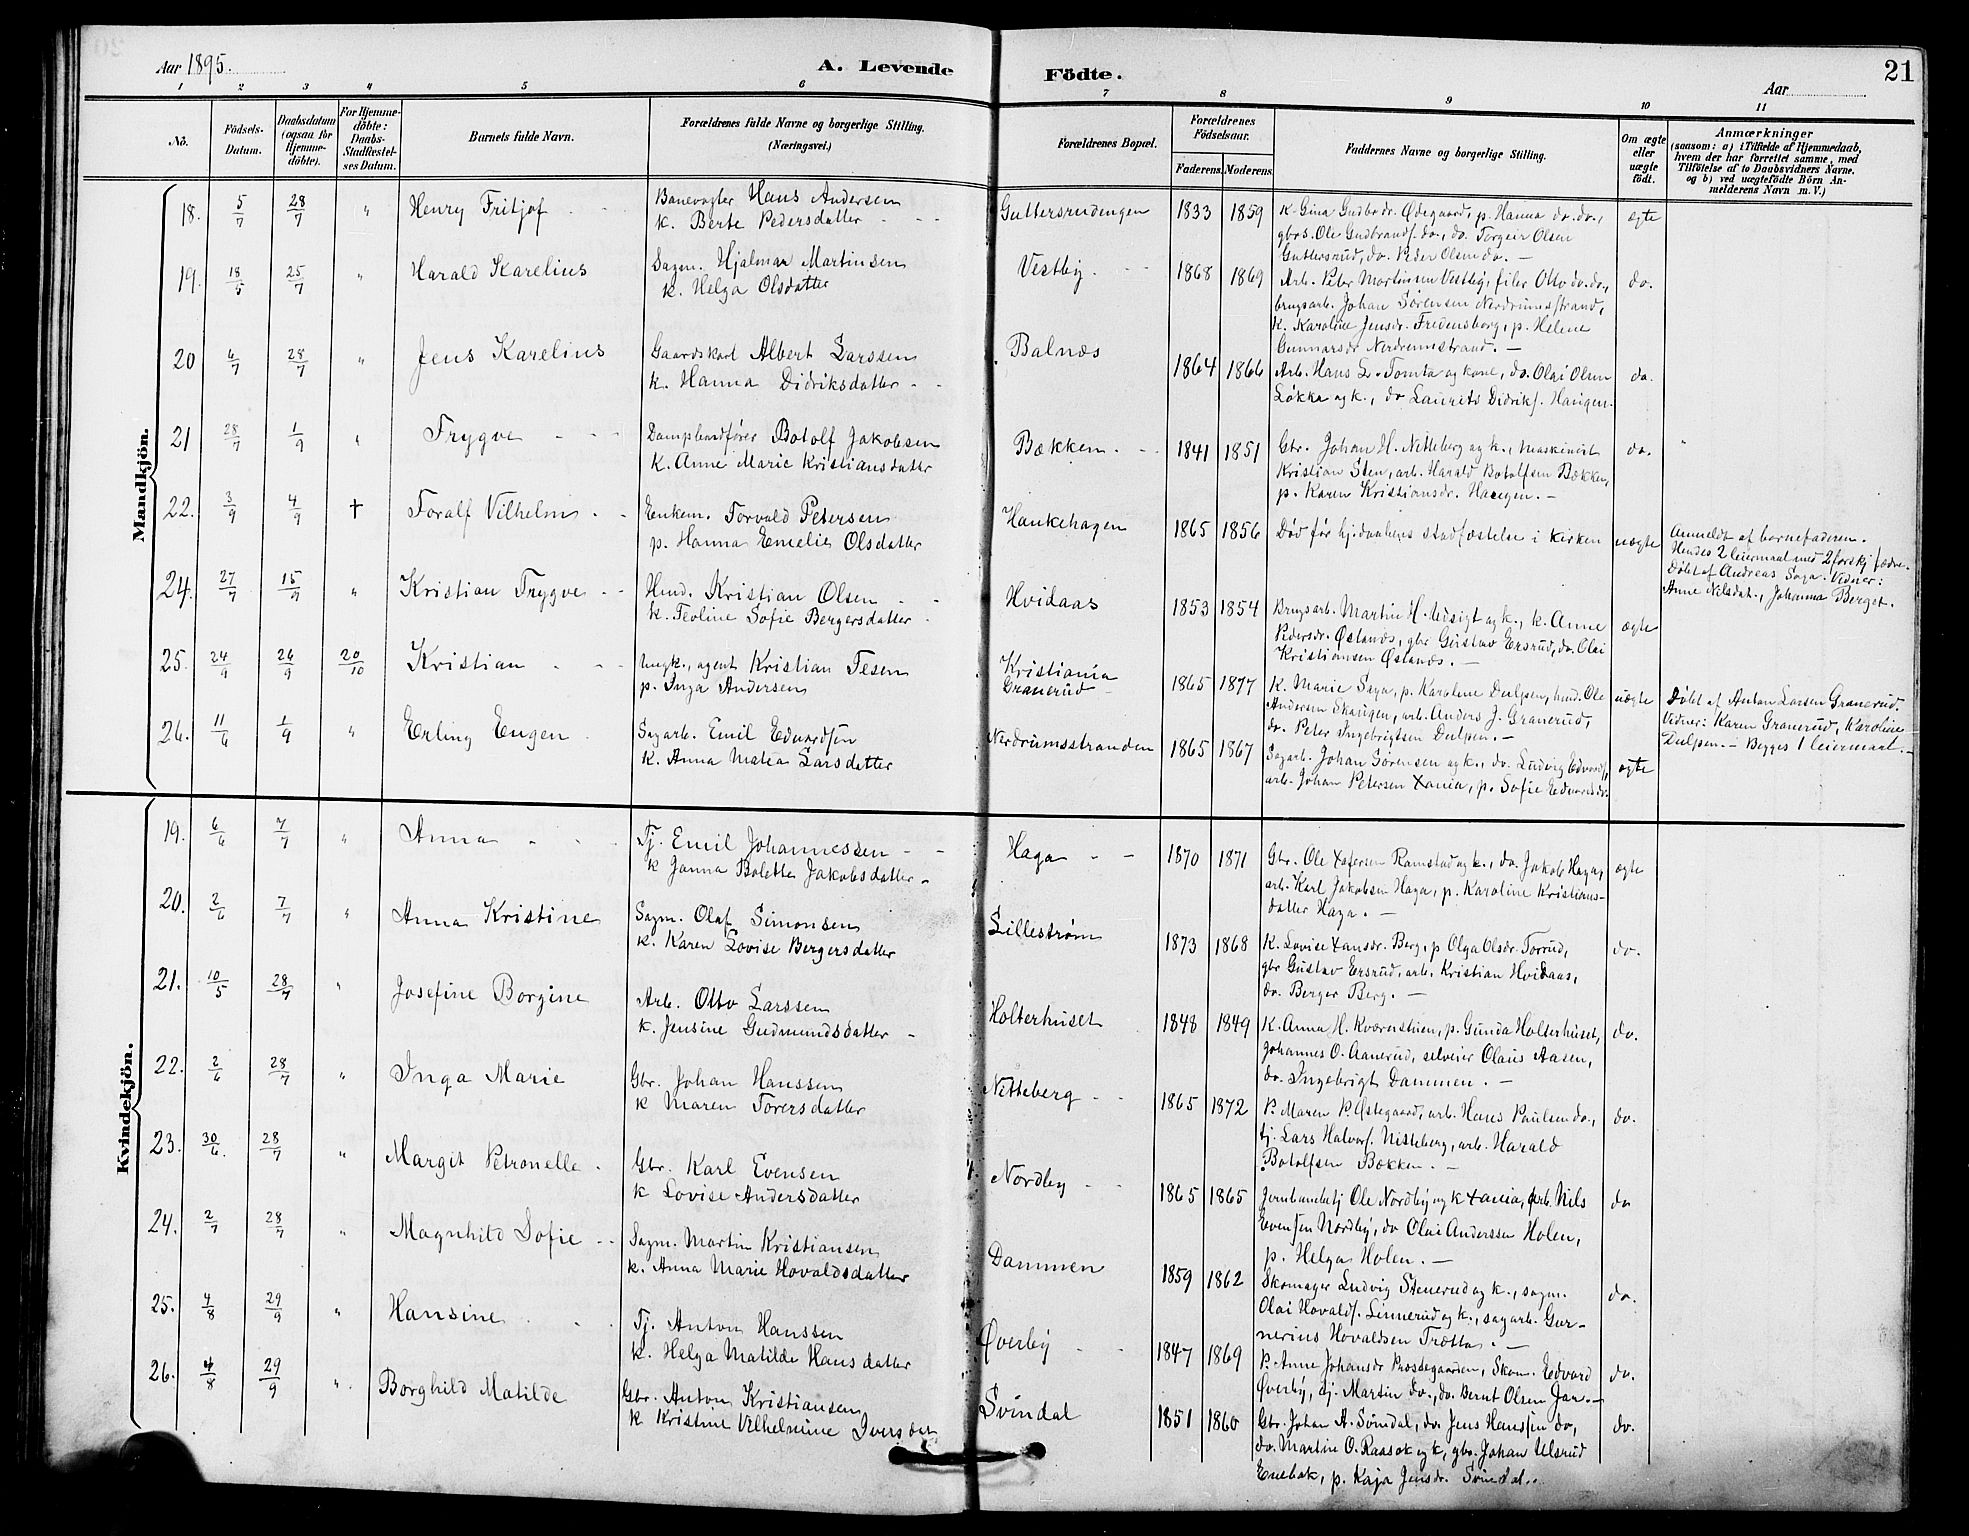 Aar 1895.
A. Levende Födte.
Aar
21
1 2 3 4 5 6 7 8 9 10 11
No.
Födsels-Datum.
Daabsdatum (ogsaa for Hjemme-döbte).
For Hjemme-döbte: Daabs-Stadfæstel-ses Datum.
Barnets fulde Navn.
Forældrenes fulde Navne og borgerlige Stilling. (Næringsvei.)
Forældrenes Bopæl.
Forældrenes Födselsaar.
Faderens. Moderens.
Faddernes Navne og borgerlige Stilling.
Om ægte eller uægte födt.
Anmærkninger (saasom: a) i Tilfælde af Hjemmedaab, hvem der har forrettet samme, med Tilföielse af to Daabsvidners Navne. og b) ved uægtefödte Börn An-melderens Navn m. V.)
Mandkjön.
18. 5/7 28/7 " Henry Fritjof
Banevogter Hans Andersen
k. Berte Pedersdatter
Guttersrudengen 1833 1859
K. Gina Gudbrdr. Ødegaard, p. Hanna do. do.,
gbrs. Ole Gudbrands. do., do. Torgeir Olsen
Guttersrud, do. Peder Olsen do. —
ægte
19. 18/5 25/7 " Harald Karelius
Sagm. Hjalmar Martinsen
k. Helga Olsdatter
Vestby. 1868 1869
Arb. Peter Martinsen Vestby, filer Otto do. do.,
brugsarb. Johan Sørensen Nerdrumsstrand,
K. Karoline Jensdr. Fredensborg, p. Helene
Gunnarsdr Nerdrumsstrand. —
do.
20 6/7 28/7 " Jens Karelius
Gaardskarl Albert Larssen
k. Hanna Didriksdatter
Balnæs 1864 1866
Arb. Hans L. Tomta og kone, do. Olai Olsen
Løkka og k., do Laurits Didriks. Haugen.
do.
21 28/7 1/9 " Trygve
Dampbaadfører Botolf Jakobsen
K. Anne Marie Kristiansdatter
Bækken. 1841 1851
Gbr. Johan H. Nitteberg og k., maskinist
Kristian Sten, arb. Harald Botolfsen Bækken,
p. Karen Kristiansdr. Haugen. —
do.
22. 3/9 4/9 † Toralf Vilhelm
Enkem. Torvald Petersen
p. Hanna Emelie Olsdatter
Haukehagen 1865 1856
Død før hj.daabens stadfæstelse i kirken
uægte
Anmeldt af barnefaderen.
Hendes 2 leiermaal med 2 forskj. fædre.
Døbt af Andreas Saga. Vidner:
Anne Nilsdat., Johanna Berget.
24. 27/7 15/9 " Kristian Trygve
Hmd. Kristian Olsen
k. Teoline Sofie Bergersdatter
Hvidaas 1853 1854
Brugsarb. Martin H. Udsigt og k., k. Anne
Pedersdr. Østanæs, gbr Gustav Ersrud, do. Olai
Kristiansen Østanæs. —
ægte
25. 24/9 26/9 20/10 Kristian
Ungk., agent Kristian Tesen
p. Inga Andersen
Kristiania
Granerud 1865 1877
K. Marie Saga, p. Karoline Dulpen, hmd. Ole
Andersen Skaugen, arb. Anders J. Granerud,
do. Peter Ingebrigtsen Dulpen. —
uægte
Døbt af Anton Larsen Granerud.
Vidner: Karen Granerud, Karoline
Dulpen. — Begges 1 leiermaal. —
26. 11/6 1/9 " Erling Eugen
Sagarb. Emil Edvardsen
k. Anna Matea Larsdatter
Nerdrumsstranden 1865 1867
Sagarb. Johan Sørensen og k., do. Ludvig Edvards.,
arb. Johan Petersen Xania, p. Sofie Edvardsdr.
ægte
Kvindekjön.
19. 6/6 7/7 " Anna
Tj. Emil Johannessen
k Janna Bolette Jakobsdatter
Haga 1870 1871
Gbr. Ole Xofersen Ramstad og k., do. Jakob Haga,
arb. Karl Jakobsen Haga, p. Karoline Kristians-
datter Haga. —
ægte
20. 2/6 7/7 " Anna Kristine
Sagm. Olaf Simonsen
k. Karen Lovise Bergersdatter
Lillestrøm 1873 1868
K. Lovise Xansdr. Berg, p Olga Olsdr. Torrud,
gbr Gustav Ersrud, arb. Kristian Hvidaas,
do. Berger Berg. —
do.
21. 10/5 28/7 " Josefine Borgine
Arb. Otto Larssen
k. Jensine Gudmundsdatter
Holterhuset 1848 1849
K. Anna H. Kværnstuen, p. Gunda Holterhuset,
Johannes O. Aanerud, selveier Olaus Aasen,
do. Ingebrigt Dammen. —
do.
22. 2/6 28/7 " Inga Marie
Gbr. Johan Hanssen
k Maren Torersdatter
Nitteberg 1865 1872
P. Maren P. Østegaard, arb. Hans Paulsen do.,
tj. Lars Halvors. Nitteberg, arb. Harald
Botolfsen Bækken. —
do.
23. 30/6 28/7 " Margit Petronelle
Gbr. Karl Evensen
k Lovise Andersdatter
Nordby 1865 1865
Jernbanebtj Ole Nordby og k Xania, arb. Nils
Evensen Nordby, do Olai Anderssen Holen,
p. Helga Holen. —
do
24. 2/7 28/7 " Magnhild Sofie
Sagm. Martin Kristiansen
k. Anna Marie Hovaldsdatter
Dammen 1859 1862
Skomager Ludvig Stenerud og k., sagm.
Olai Hovalds. Linnerud og k., sagarb. Gun-
nerius Hovaldsen Trætta. —
do.
25. 4/8 29/9 " Hansine
Tj. Anton Hanssen
k. Helga Matilde Hansdatter
Øverby 1847 1869
P. Anne Johansdr Prestegaarden, Skom. Edvard
Øverby, tj. Martin do., do. Bernt Olsen Jar. —
do.
26. 4/8 29/9 " Borghild Matilde
Gbr. Anton Kristiansen
k Kristine Vilhelmine Iversdat
Svindal 1851 1860
Gbr. Johan A. Svindal, do. Jens Hanssen do,
do. Martin O. Raasok og k, gbr. Johan Ulsrud
Enebak, p. Kaja Jensdr. Svindal.
do.